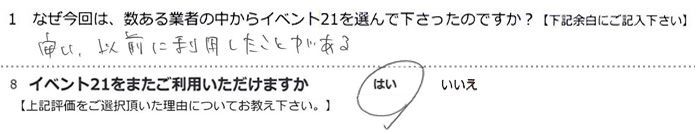 1 なぜ今回は、数ある業者の中からイベント21を選んで下さったのですか？【下記余白にご記入下さい】
以前に利用したことがある
8 イベント21をまたご利用いただけますか はい いいえ
【上記評価をご選択頂いた理由についてお教え下さい。】